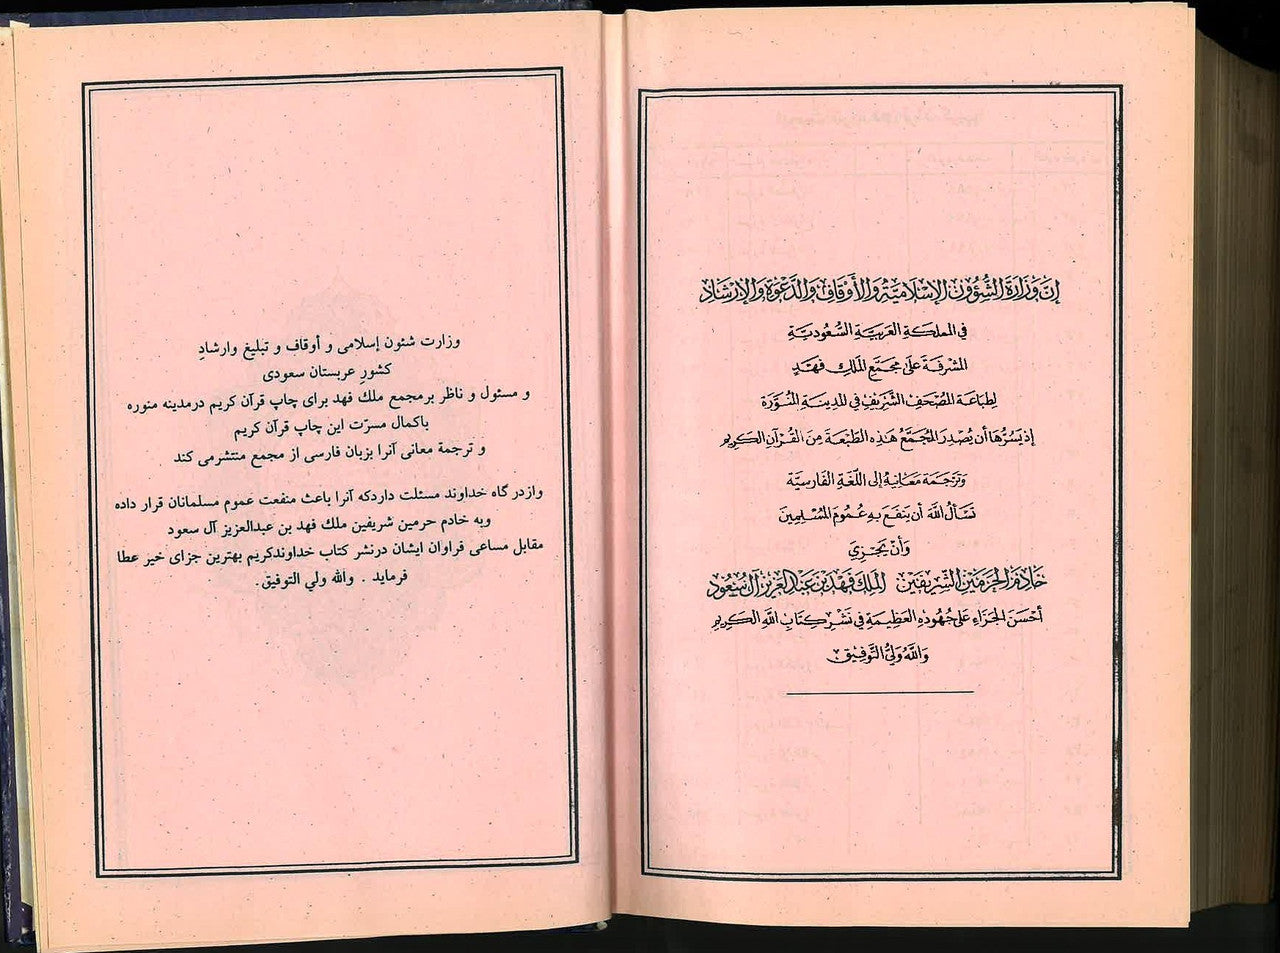 إِنَّ وَزَارَةَ الشُّؤُونِ الإِسْلَامِيَّةِ وَالأَوْقَافِ وَالدَّعْوَةِ وَالإِرْشَادِ
فِي المَملَكَةِ العَرَبِيَّةِ السُّعُودِيَّةِ
المشْرِفَةَ عَلَى مُجَمَّعِ المَلِكِ فَهَدٍ
لِطِبَاعَةِ المُصْحَفِ الشَّرِيفِ فِي المَدِينَةِ المُنَوَّرَةِ
إِذ يَسُرُّهَا أَن يُصْدِرَ المُجَمَّعُ هَذِهِ الطَّبْعَةَ مِنَ القُرْآنِ الكَرِيمِ
وَتَرْجَمَةَ مَعَانِيهِ إِلَى اللُّغَةِ الفَارِسِيَّةِ
تَسْأَلُ اللَّهَ أَن يَنفَعَ بِهِ عُمُومَ المُسْلِمِينَ
وَأَنْ يَجْزِيَ
خَادِمَ الحَرَمَيْنِ الشَّرِيفَيْنِ المَلِكَ فَهْدَ بْنَ عَبْدِ العَزِيزِ آل سُعُود
أَحْسَنَ الجَزَاءِ عَلَى جُهُودِهِ العَظِيمَةِ فِي نَشْرِ كِتَابِ اللَّهِ الكَرِيمِ
وَاللَّهُ وَلِيُّ التَّوْفِيقِ
وزارت شئون إسلامى و أوقاف و تبليغ وارشادِ
كشورِ عربستان سعودى
و مسئول و ناظر برمجمع ملك فهد براى چاپ قرآن كريم درمدينه منوره
باكمال مسرّت اين چاپ قرآن كريم
و ترجمة معانى آنرا بزبان فارسى از مجمع منتشرمى كند
وازدر گاه خداوند مسئلت داردكه آنرا باعث منفعت عموم مسلمانان قرار داده
وبه خادم حرمين شريفين ملك فهد بن عبدالعزيز آل سعود
مقابل مساعى فراوان ايشان درنشر كتاب خداوندكريم بهترين جزاى خير عطا
فرمايد . والله ولي التوفيق.